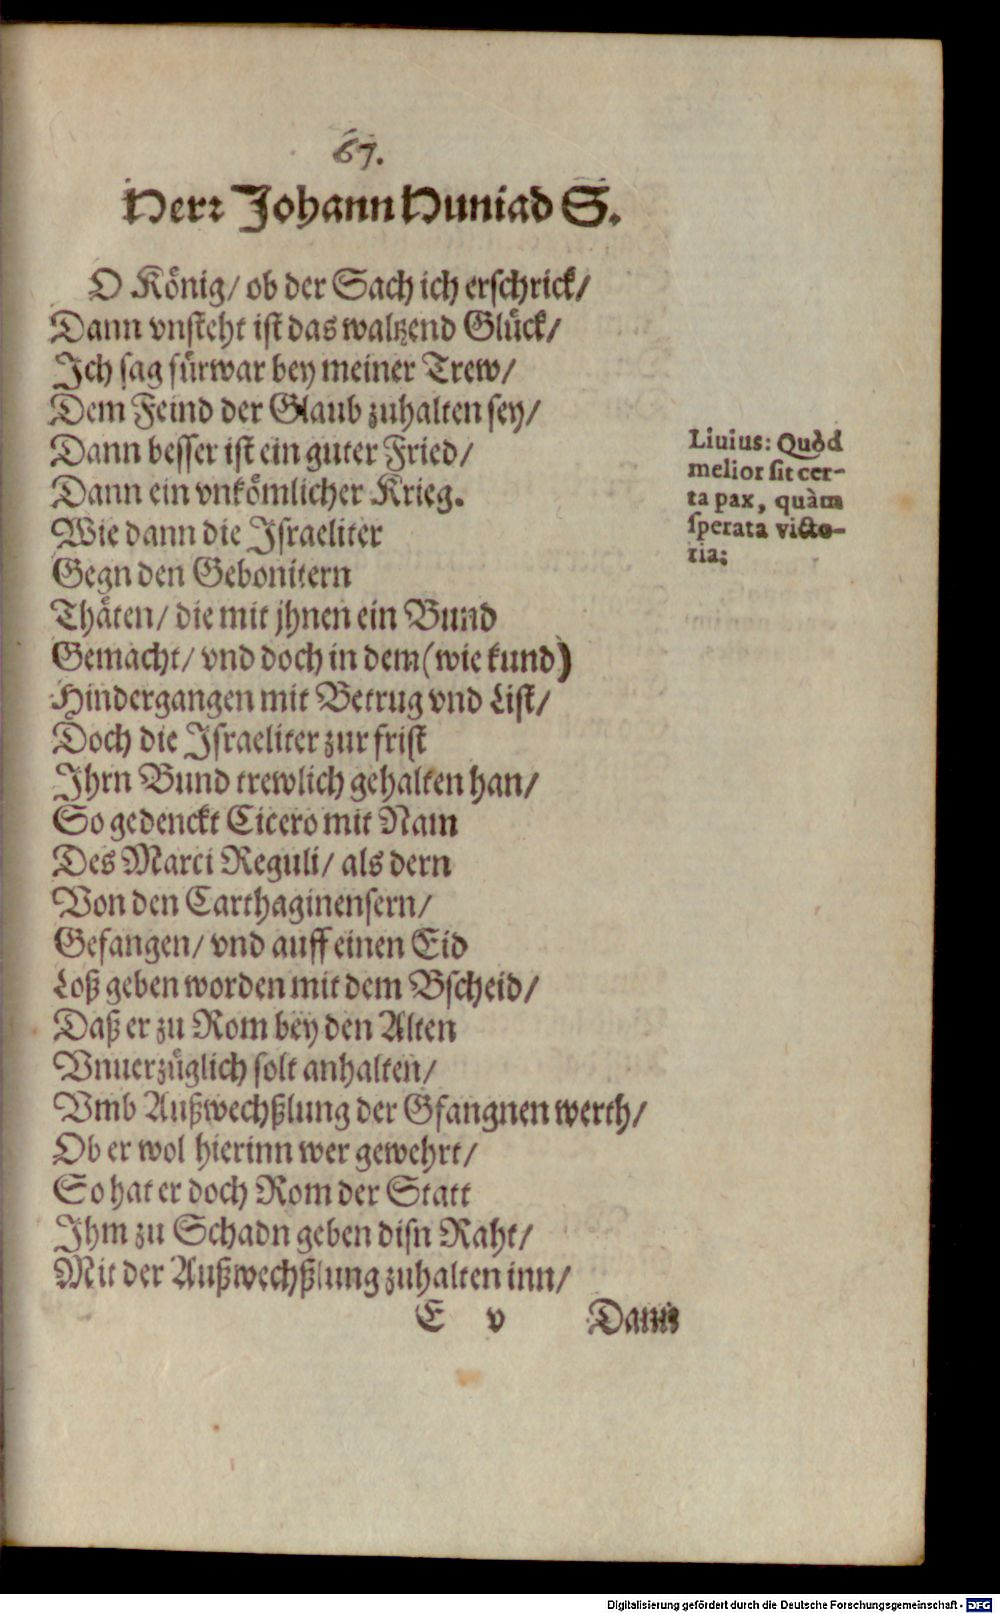 67.
Herr Johann Huniad S.
O König/ ob der Sach ich erschrick/
Dann vnsteht ist das waltzend Glück/
Ich sag fürwar bey meiner Trew/
Dem Feind der Glaub zuhalten sey/
Dann besser ist ein guter Fried/
Dann ein vnkömlicher Krieg.
Wie dann die Israeliter
Gegn den Gebonitern
Thäten/ die mit jhnen ein Bund
Gemacht/ vnd doch in dem (wie kund)
Hindergangen mit Betrug vnd List/
Doch die Israeliter zur frist
Ihrn Bund trewlich gehalten han/
So gedenckt Cicero mit Nam
Des Marci Reguli/ als dern
Von den Carthaginensern/
Gefangen/ vnd auff einen Eid
Loß geben worden mit dem Bscheid/
Daß er zu Rom bey den Alten
Vnuerzüglich solt anhalten/
Vmb Außwechßlung der Gfangnen werth/
Ob er wol hierinn wer gewehrt/
So hat er doch Rom der Statt
Ihm zu Schadn geben disn Raht/
Mit der Außwechßlung zuhalten inn/
E v Dann
Liuius: Quòd
melior sit cer-
ta pax, quàm
sperata victo-
ria;
Digitalisierung gefördert durch die Deutsche Forschungsgemeinschaft - DFG